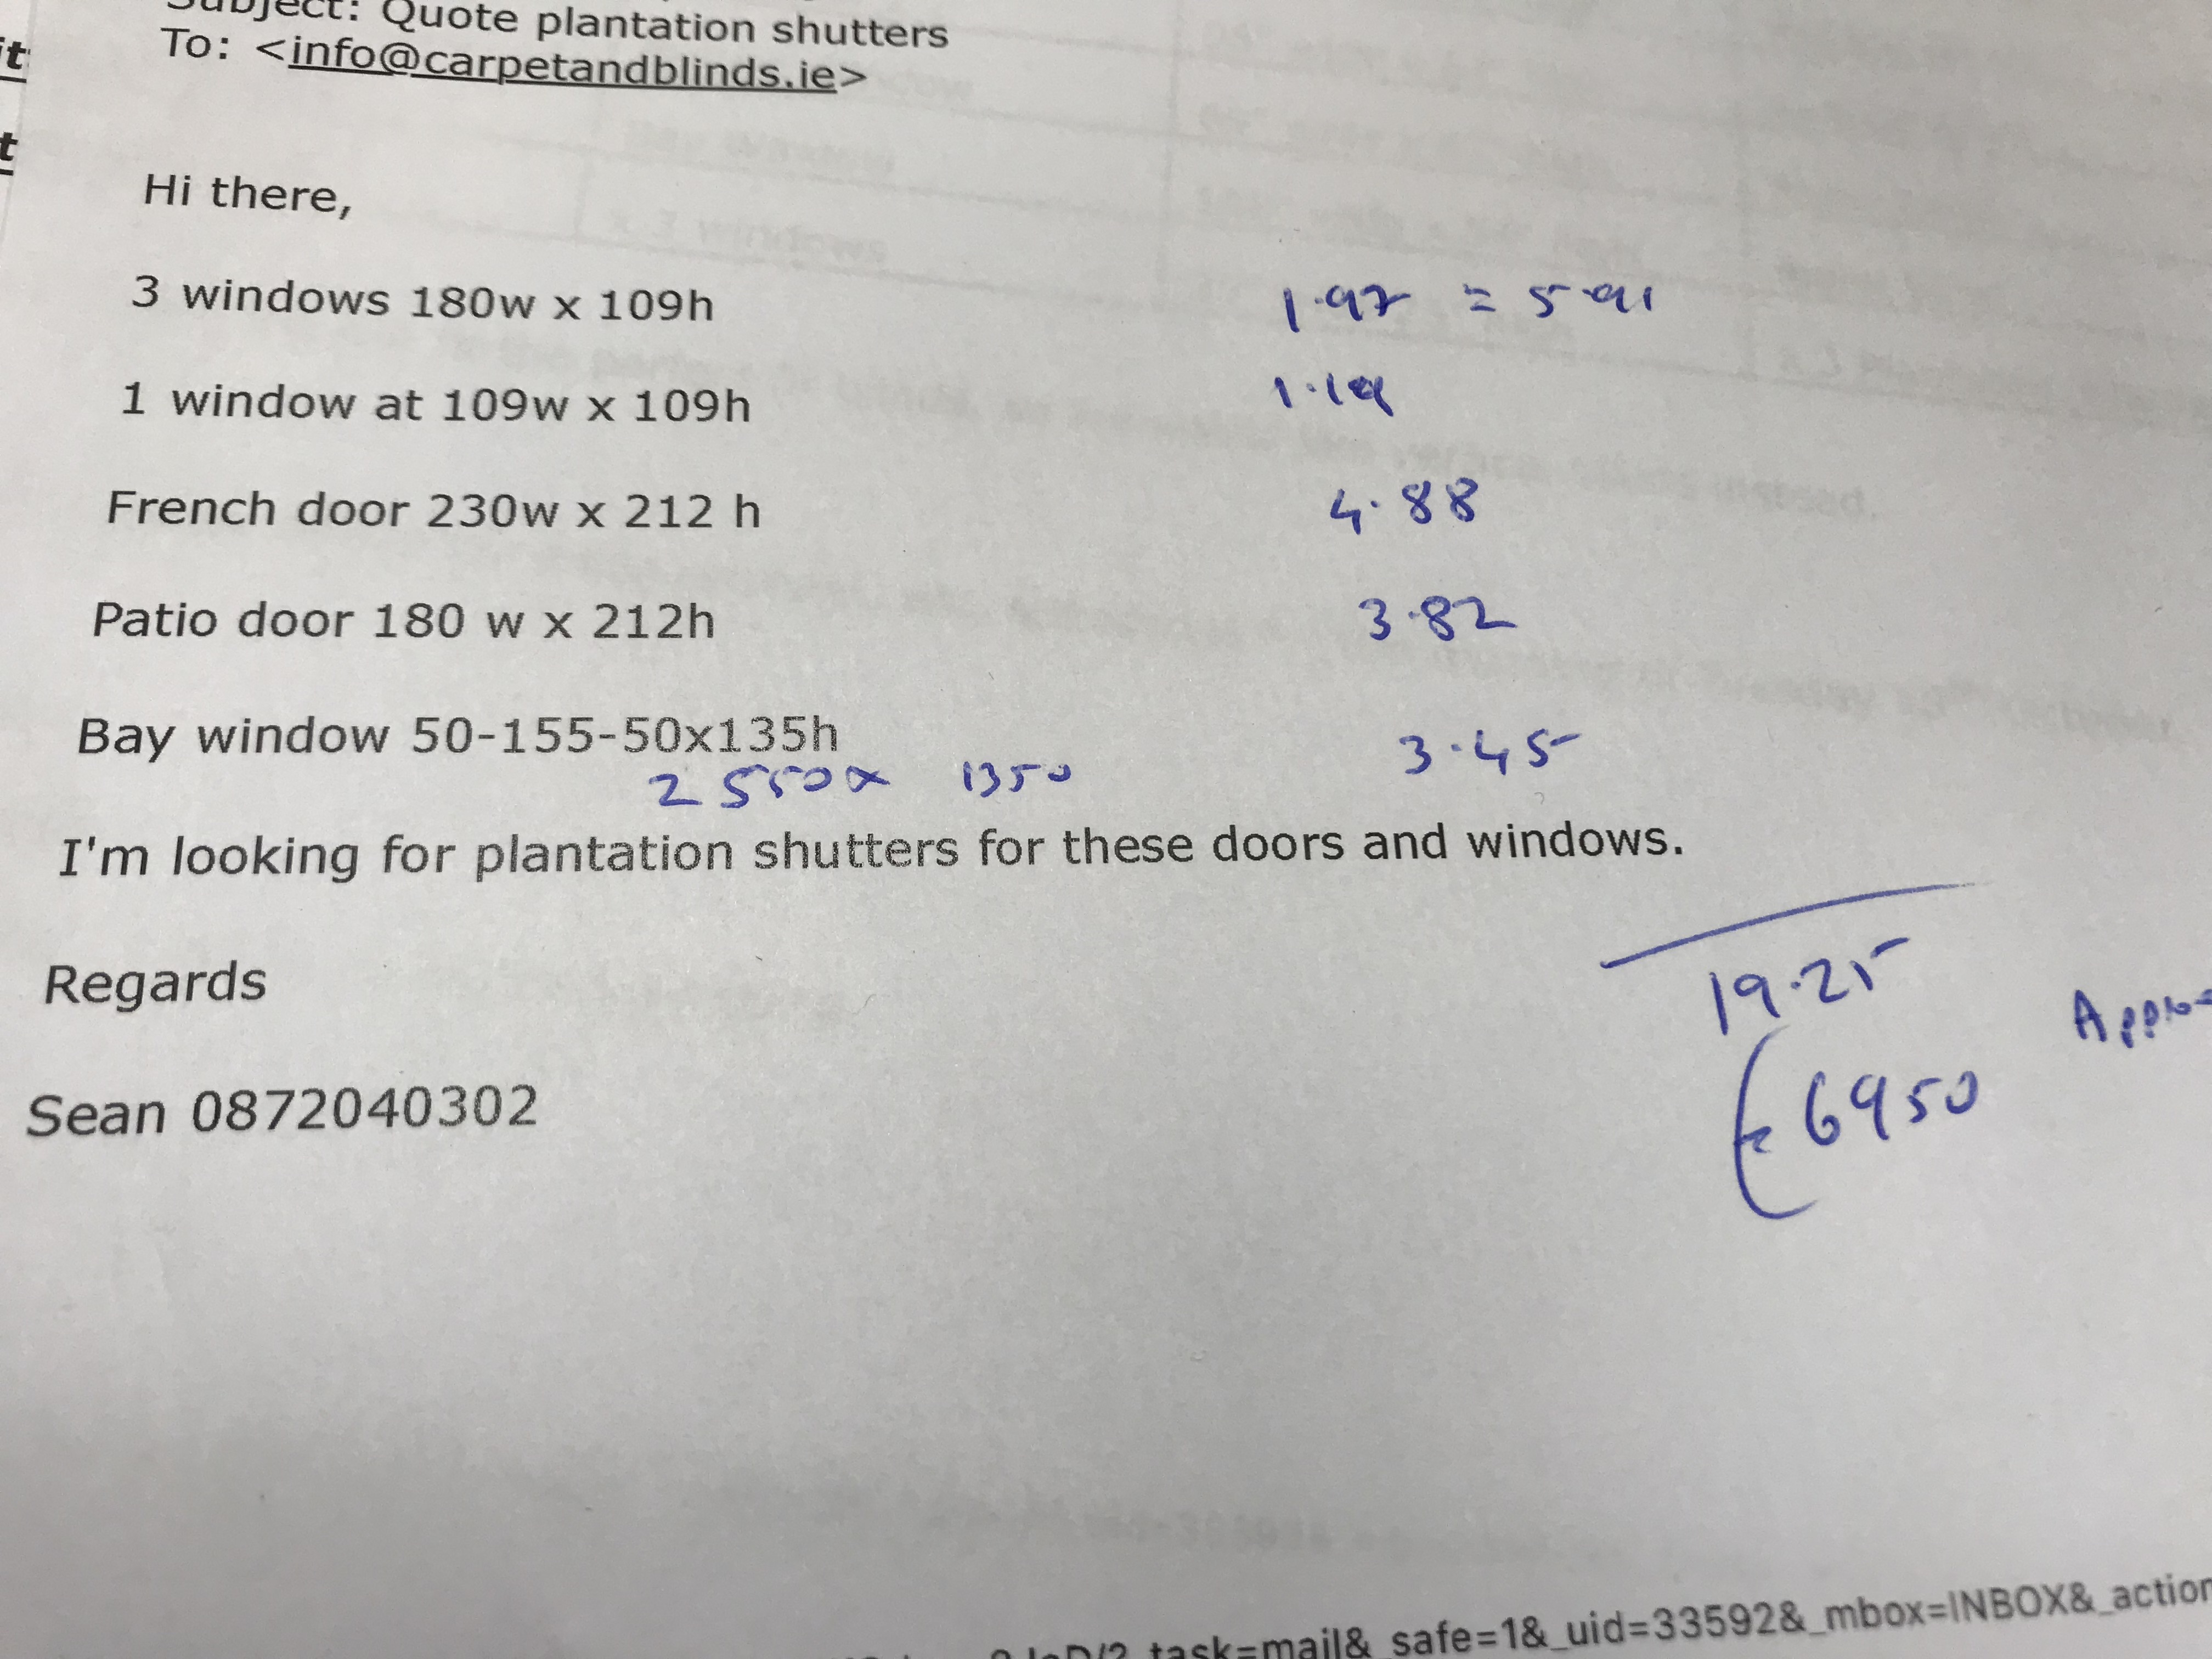 Subject: Quote plantation shutters
To: <info@carpetandblinds.ie>
it
t
Hi there,
3 windows 180w x 109h 1.97 = 5.91
1 window at 109w x 109h 1.19
French door 230w x 212 h 4.88
Patio door 180 w x 212h 3.82
Bay window 50-155-50x135h 3.45
2550x 1350
I'm looking for plantation shutters for these doors and windows.
19.25
Regards
€6950
Sean 0872040302
task=mail&_safe=1&_uid=33592&_mbox=INBOX&_action